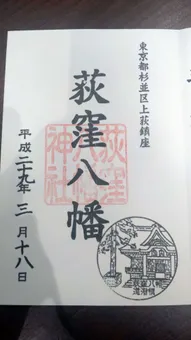 東京都杉並区上荻鎮座
荻窪八幡
荻窪八幡神社
平成二十九年三月十八日
荻窪八幡